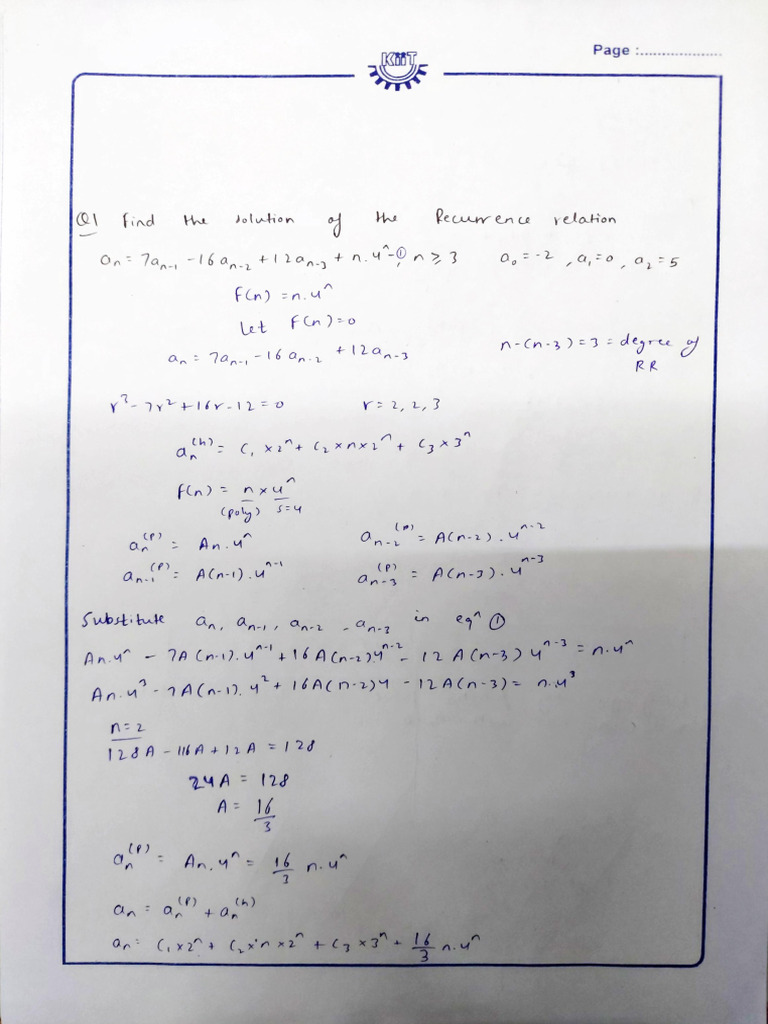 Page :....................
KiiT
Q1 Find the solution of the Recurrence relation
aₙ = 7aₙ₋₁ - 16aₙ₋₂ + 12aₙ₋₃ + n.4ⁿ - ①, n ≥ 3 a₀ = -2 , a₁ = 0 , a₂ = 5
F(n) = n.4ⁿ
Let F(n) = 0
aₙ = 7aₙ₋₁ - 16aₙ₋₂ + 12aₙ₋₃ n-(n-3) = 3 = degree of
RR
r³ - 7r² + 16r - 12 = 0 r = 2, 2, 3
aₙ⁽ʰ⁾ = C₁ × 2ⁿ + C₂ × n × 2ⁿ + C₃ × 3ⁿ
F(n) = n × 4ⁿ
(poly) s=4
aₙ⁽ᵖ⁾ = An.4ⁿ aₙ₋₂⁽ᵖ⁾ = A(n-2).4ⁿ⁻²
aₙ₋₁⁽ᵖ⁾ = A(n-1).4ⁿ⁻¹ aₙ₋₃⁽ᵖ⁾ = A(n-3).4ⁿ⁻³
Substitute aₙ, aₙ₋₁, aₙ₋₂, aₙ₋₃ in eqⁿ ①
An.4ⁿ - 7A(n-1).4ⁿ⁻¹ + 16A(n-2)4ⁿ⁻² - 12A(n-3)4ⁿ⁻³ = n.4ⁿ
An.4³ - 7A(n-1).4² + 16A(n-2)4 - 12A(n-3) = n.4³
n=2
128A - 116A + 12A = 128
24A = 128
A = 16/3
aₙ⁽ᵖ⁾ = An.4ⁿ = 16/3 n.4ⁿ
aₙ = aₙ⁽ᵖ⁾ + aₙ⁽ʰ⁾
aₙ = C₁ × 2ⁿ + C₂ × n × 2ⁿ + C₃ × 3ⁿ + 16/3 n.4ⁿ